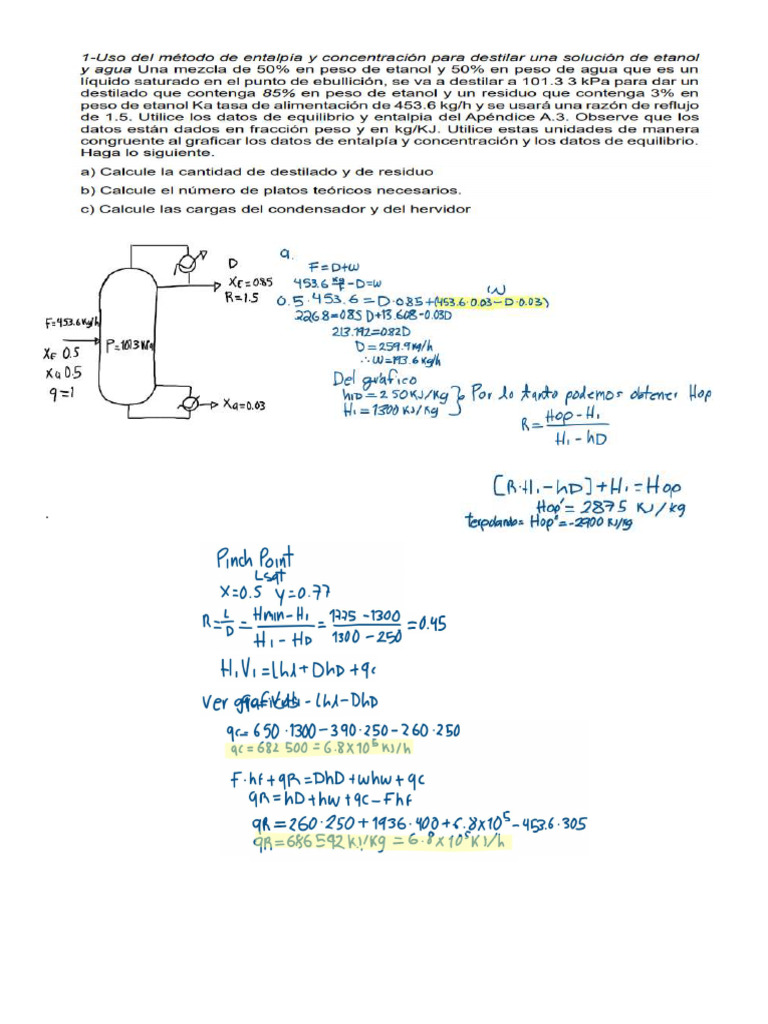 1-Uso del método de entalpía y concentración para destilar una solución de etanol
y agua Una mezcla de 50% en peso de etanol y 50% en peso de agua que es un
líquido saturado en el punto de ebullición, se va a destilar a 101.3 3 kPa para dar un
destilado que contenga 85% en peso de etanol y un residuo que contenga 3% en
peso de etanol Ka tasa de alimentación de 453.6 kg/h y se usará una razón de reflujo
de 1.5. Utilice los datos de equilibrio y entalpia del Apéndice A.3. Observe que los
datos están dados en fracción peso y en kg/KJ. Utilice estas unidades de manera
congruente al graficar los datos de entalpía y concentración y los datos de equilibrio.
Haga lo siguiente.
a) Calcule la cantidad de destilado y de residuo
b) Calcule el número de platos teóricos necesarios.
c) Calcule las cargas del condensador y del hervidor
D
XE=0.85
R=1.5
F=453.6Kg/h
P=101.3 KPa
XE 0.5
XQ 0.5
q=1
Xa=0.03
a.
F=D+W
453.6 -D=W
W
0.5·453.6=D·085+(453.6·0.03-D·0.03)
2268=085D+13.608-0.03D
213.192=0.82D
D=259.9kg/h
∴W=193.6kg/h
Del gráfico
hD=250KJ/Kg
H1=1300KJ/Kg
Por lo tanto podemos obtener Hop
R=Hop-H1
H1-hD
[R·H1-hD]+H1=Hop
Hop'=2875 KJ/kg
Hop"=-2900 KJ/kg
Pinch Point
Lsat
X=0.5 y=0.77
R=L/D=Hmin-H1/H1-HD=1775-1300/1300-250=0.45
H1V1=Lh1+DhD+qc
Ver -Lh1-DhD
qc=650·1300-390·250-260·250
qc=682 500=6.8X10⁵KJ/h
F·hf+qR=DhD+whw+qc
qR=hD+hw+qc-Fhf
qR=260·250+1936·400+6.8x10⁵-453.6·305
qR=686592KJ/Kg=6.8x10⁵KJ/h